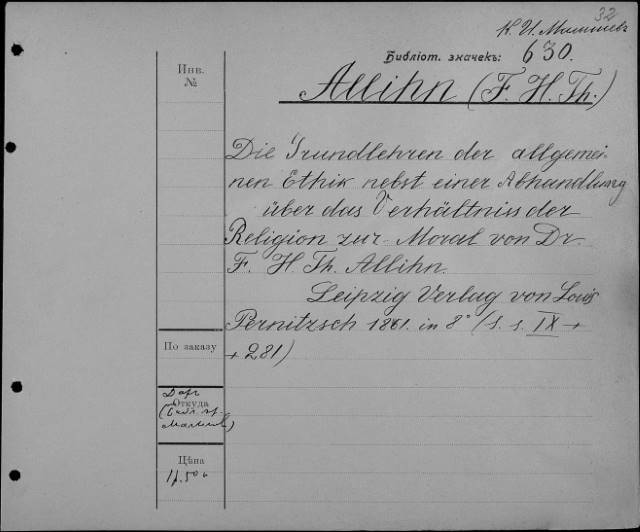 32
К. И.
Библіот. значекъ: 630.
Allihn (F. H. Th.)
Инв.
№
Die Grundlehren der allgemei-
nen Ethik nebst einer Abhandlung
über das Verhältniss der
Religion zur Moral von Dr.
F. H. Th. Allihn.
Leipzig Verlag von Louis
Pernitzsch 1861. in 8° (S. s. IX +
+ 281)
По заказу
Откуда
Цѣна